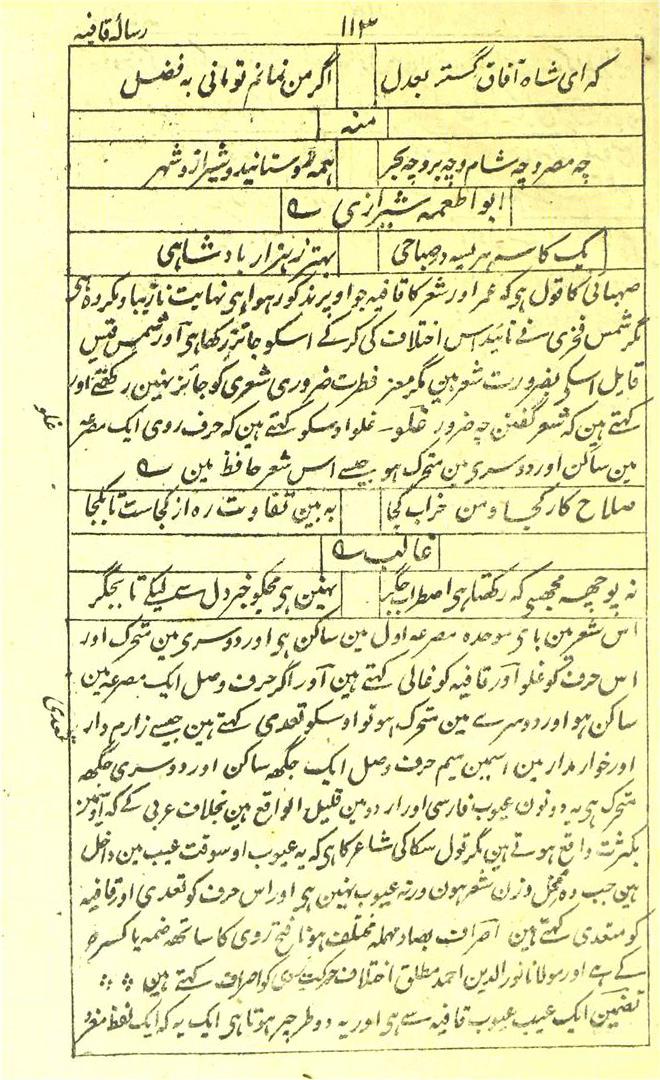 رسالۂ قافیہ ۱۱۳
کہ ای شاہ آفاق گستر بعدل اگر من نمانم تو مانی بہ فضل
منہ
چہ مصر و چہ شام و چہ بر و چہ بحر ہمہ روستائیند و شیراز و شہر
ابو اطعمہ شیرازی
یک کاسہ ہریسہ در صباحی بہتر ز ہزار بادشاہی
صہبائی کا قول ہی کہ عمر اور شعر کا قافیہ جو اوپر مذکور ہوا ہی نہایت نازیبا و مکروہ ہی
مگر شمس فخری نے تائید اس اختلاف کی کر کے اسکو جائز رکھا ہی اور شمس قیس
قایل اسکے بضرورت شعر ہین مگر معز فطرت ضروری شعری کو جائز نہین رکھتے اور
کہتے ہین کہ شعر گفتن چہ ضرور غلو۔ غلو اوسکو کہتے ہین کہ حرف روی ایک مصرعہ
غلو
مین ساکن اور دوسری مین متحرک ہو جیسے اس شعر حافظ مین
صلاح کار کجا و من خراب کجا بہ بین تفاوت رہ از کجاست تا بکجا
غالب
نہ پوچھہ مجھسے کہ رکھتا ہی اضطراب جگر نہین ہی مجکو خبر دل سے لیکے تا بجگر
اس شعر مین بای موحدہ مصرعہ اول مین ساکن ہی اور دوسری مین متحرک اور
اس حرف کو غلو اور قافیہ کو غالی کہتے ہین اور اگر حرف وصل ایک مصرعہ مین
ساکن ہو اور دوسرے مین متحرک ہو تو اوسکو تعدی کہتے ہین جیسے زارم دار
تعدی
اور خوار مدار مین اسمین میم حرف وصل ایک جگھہ ساکن اور دوسری جگھہ
متحرک ہی یہ دونون عیوب فارسی اور اردو مین قلیل الواقع ہین بخلاف عربی کے کہ اوسمین
بکثرت واقع ہوتے ہین مگر قول سکا کی شاعر کا ہی کہ یہ عیوب اوسوقت عیب مین داخل
ہین جب وہ مخل وزن شعر ہون ورنہ عیوب نہین ہی اور اس حرف کو تعدی اور قافیہ
کو متعدی کہتے ہین اصراف بصاد مہملہ مختلف ہونا فتح روی کا ساتھ ضمہ یا کسرہ
کے ہے اور مولانا نور الدین احمد مطلق اختلاف حرکت روی کو اصراف کہتے ہین
تضمین ایک عیب عیوب قافیہ سے ہی اور یہ دو طرح پر ہوتا ہی ایک یہ کہ ایک لفظ مفرد